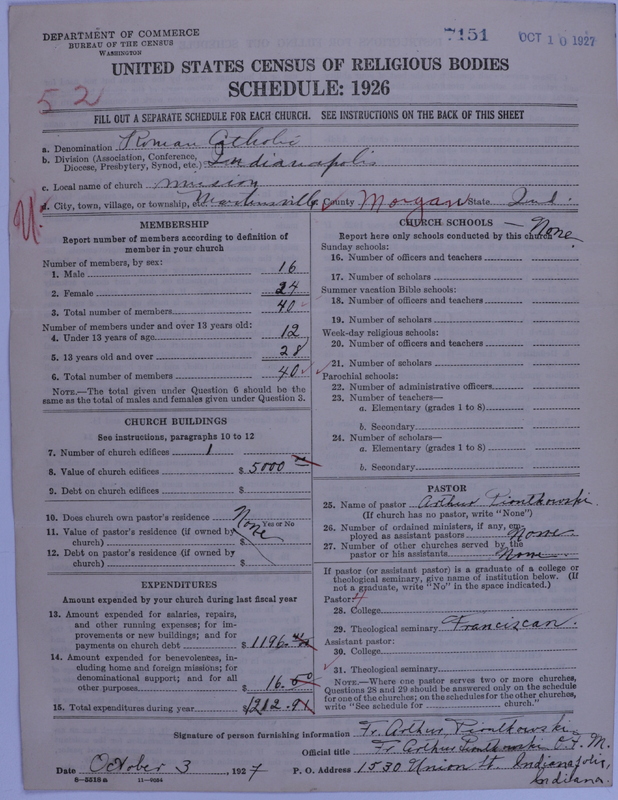 DEPARTMENT OF COMMERCE
BUREAU OF THE CENSUS
WASHINGTON
7151
OCT 10 1927
UNITED STATES CENSUS OF RELIGIOUS BODIES
SCHEDULE: 1926
52
FILL OUT A SEPARATE SCHEDULE FOR EACH CHURCH. SEE INSTRUCTIONS ON THE BACK OF THIS SHEET
a. Denomination Roman Catholic
b. Division (Association, Conference, Diocese, Presbytery, Synod, etc.) Indianapolis
c. Local name of church mission
d. City, town, village, or township, etc. Martinsville County Morgan State Ind.
U.
MEMBERSHIP
Report number of members according to definition of
member in your church
Number of members, by sex:
1. Male 16
2. Female 24
3. Total number of members 40
Number of members under and over 13 years old:
4. Under 13 years of age 12
5. 13 years old and over 28
6. Total number of members 40
NOTE.—The total given under Question 6 should be the
same as the total of males and females given under Question 3.
CHURCH BUILDINGS
See instructions, paragraphs 10 to 12
7. Number of church edifices 1
8. Value of church edifices $ 5000
9. Debt on church edifices $
10. Does church own pastor's residence None
Yes or No
11. Value of pastor's residence (if owned by
church) $
12. Debt on pastor's residence (if owned by
church) $
EXPENDITURES
Amount expended by your church during last fiscal year
13. Amount expended for salaries, repairs,
and other running expenses; for im-
provements or new buildings; and for
payments on church debt $ 1196.
14. Amount expended for benevolences, in-
cluding home and foreign missions; for
denominational support; and for all
other purposes $ 16.00
15. Total expenditures during year $1212.91
CHURCH SCHOOLS — None
Report here only schools conducted by this church.
Sunday schools:
16. Number of officers and teachers
17. Number of scholars
Summer vacation Bible schools:
18. Number of officers and teachers
19. Number of scholars
Week-day religious schools:
20. Number of officers and teachers
21. Number of scholars
Parochial schools:
22. Number of administrative officers
23. Number of teachers—
a. Elementary (grades 1 to 8)
b. Secondary
24. Number of scholars—
a. Elementary (grades 1 to 8)
b. Secondary
PASTOR
25. Name of pastor Arthur Piontkowski
(If church has no pastor, write "None")
26. Number of ordained ministers, if any, em-
ployed as assistant pastors None
27. Number of other churches served by the
pastor or his assistants None
If pastor (or assistant pastor) is a graduate of a college or
theological seminary, give name of institution below. (If
not a graduate, write "No" in the space indicated.)
Pastor: 4
28. College
29. Theological seminary Franciscan.
Assistant pastor:
30. College
31. Theological seminary
NOTE.—Where one pastor serves two or more churches,
Questions 28 and 29 should be answered only on the schedule
for one of the churches; on the schedules for the other churches,
write "See schedule for church."
Signature of person furnishing information Fr. Arthur Piontkowski
Official title Fr. Arthur Piontkowski O.F.M.
Date October 3, 1927 P. O. Address 1530 Union St. Indianapolis,
Indiana.
8—5318a 11—9334